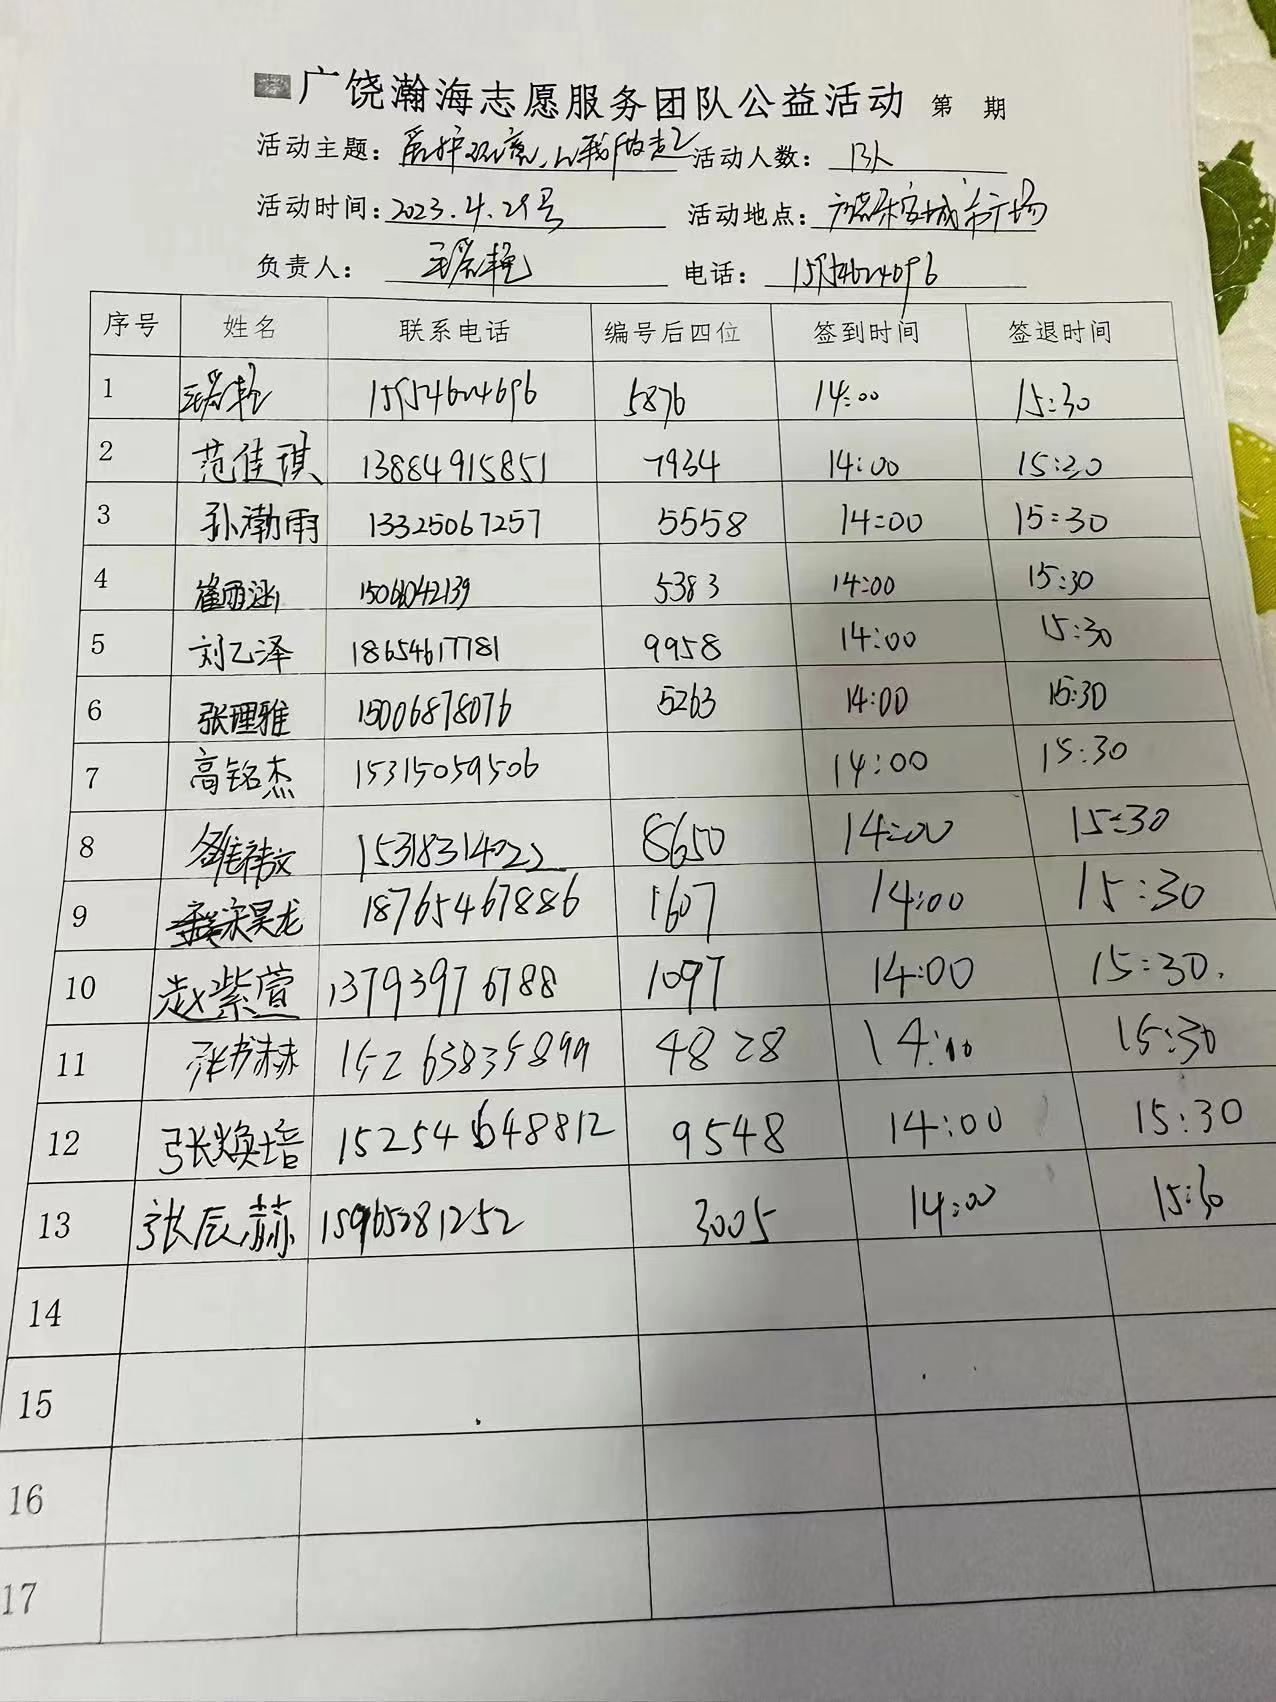 广饶瀚海志愿服务团队公益活动 第 期
活动主题: 爱护环境,从我做起 活动人数: 13人
活动时间: 2023.4.29号 活动地点: 城市广场
负责人: 电话:
序号 姓名 联系电话 编号后四位 签到时间 签退时间
1 15954624696 5876 14:00 15:30
2 范佳琪 13884915851 7934 14:00 15:20
3 孙渤雨 13325067257 5558 14:00 15:30
4 崔雨涵 15066042139 5383 14:00 15:30
5 刘乙泽 18654617781 9958 14:00 15:30
6 张理雅 15006878076 5263 14:00 15:30
7 高铭杰 15315059506 14:00 15:30
8 15318314022 8650 14:00 15:30
9 宋昊龙 18765467886 1607 14:00 15:30
10 赵紫萱 13793976788 1097 14:00 15:30.
11 张书赫 15263835899 4828 14:00 15:30
12 张焕培 152541648812 9548 14:00 15:30
13 张辰赫 15965281252 3005 14:00 15:30
14
15
16
17